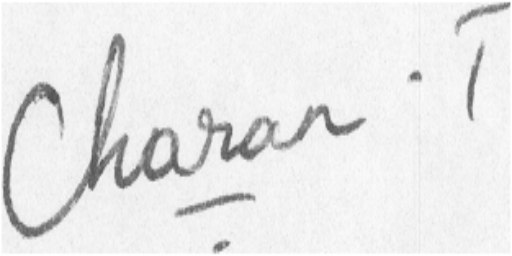 Charan . T